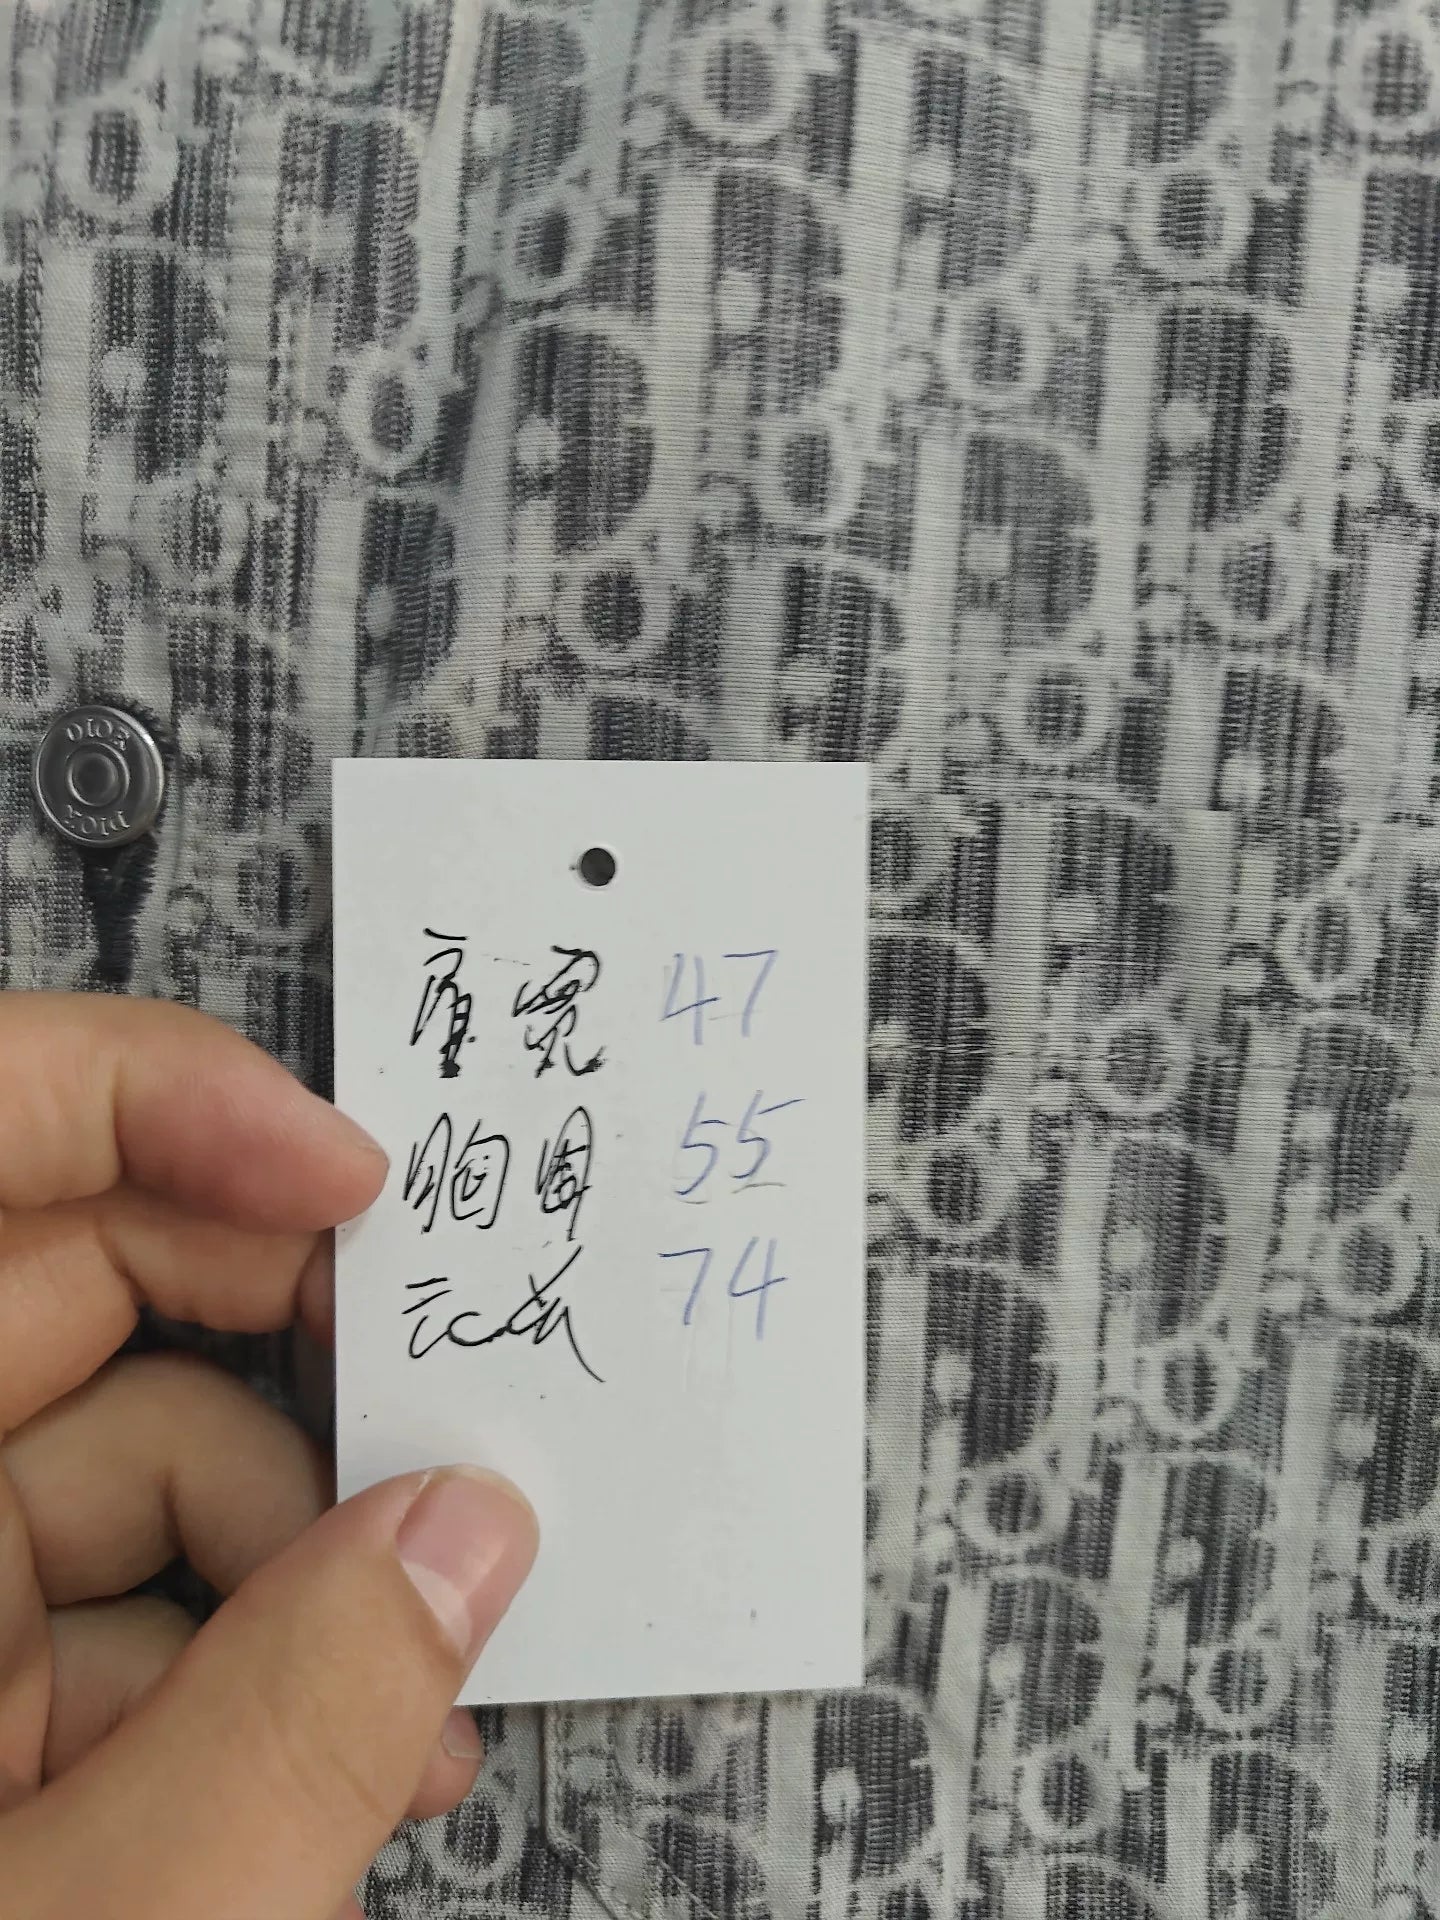 DIOR
DIOR
肩宽 47
胸围 55
衣长 74